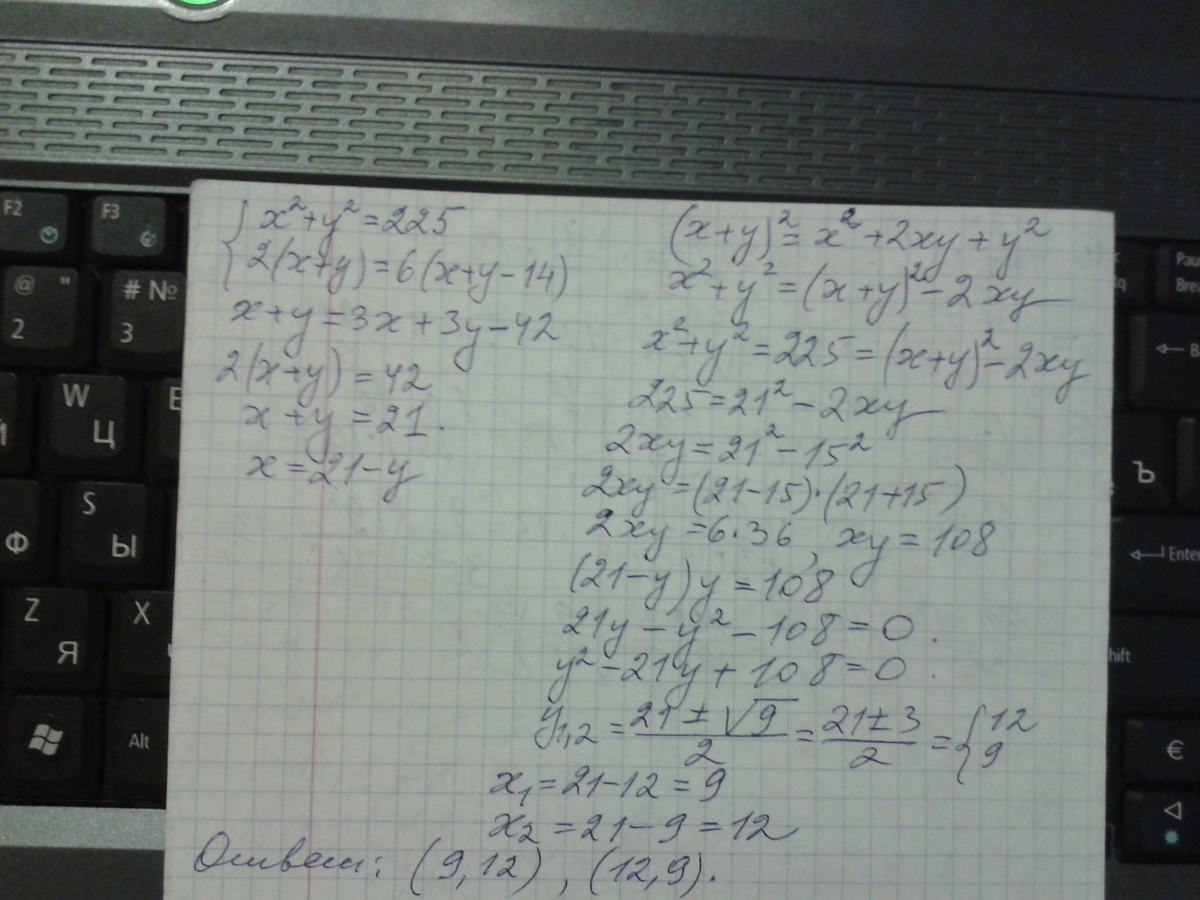 F2
F3
@ "
2
# №
3
W
Ц
E
S
Ф
Ы
Z
Я
X
Alt
Pau
Brea
Ъ
Enter
hift
€
{ x² + y² = 225
2(x+y) = 6(x+y-14)
x+y = 3x+3y-42
2(x+y) = 42
x+y = 21.
x = 21-y
(x+y)² = x² + 2xy + y²
x² + y² = (x+y)² - 2xy
x² + y² = 225 = (x+y)² - 2xy
225 = 21² - 2xy
2xy = 21² - 15²
2xy = (21-15)·(21+15)
2xy = 6·36, xy = 108
(21-y)y = 108
21y - y² - 108 = 0.
y² - 21y + 108 = 0.
y₁,₂ = (21 ± √9)/2 = (21 ± 3)/2 = { 12
9
x₁ = 21-12 = 9
x₂ = 21-9 = 12
Ответ: (9,12), (12,9).